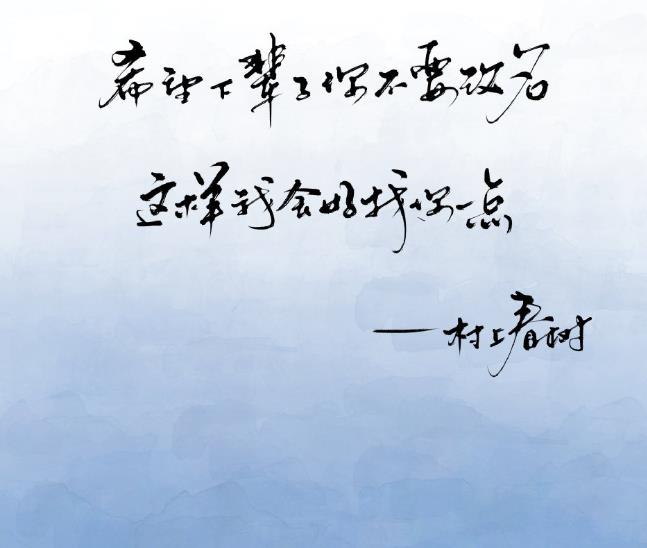 希望下辈子你不要改名
这样我会好找你一点
——村上春树